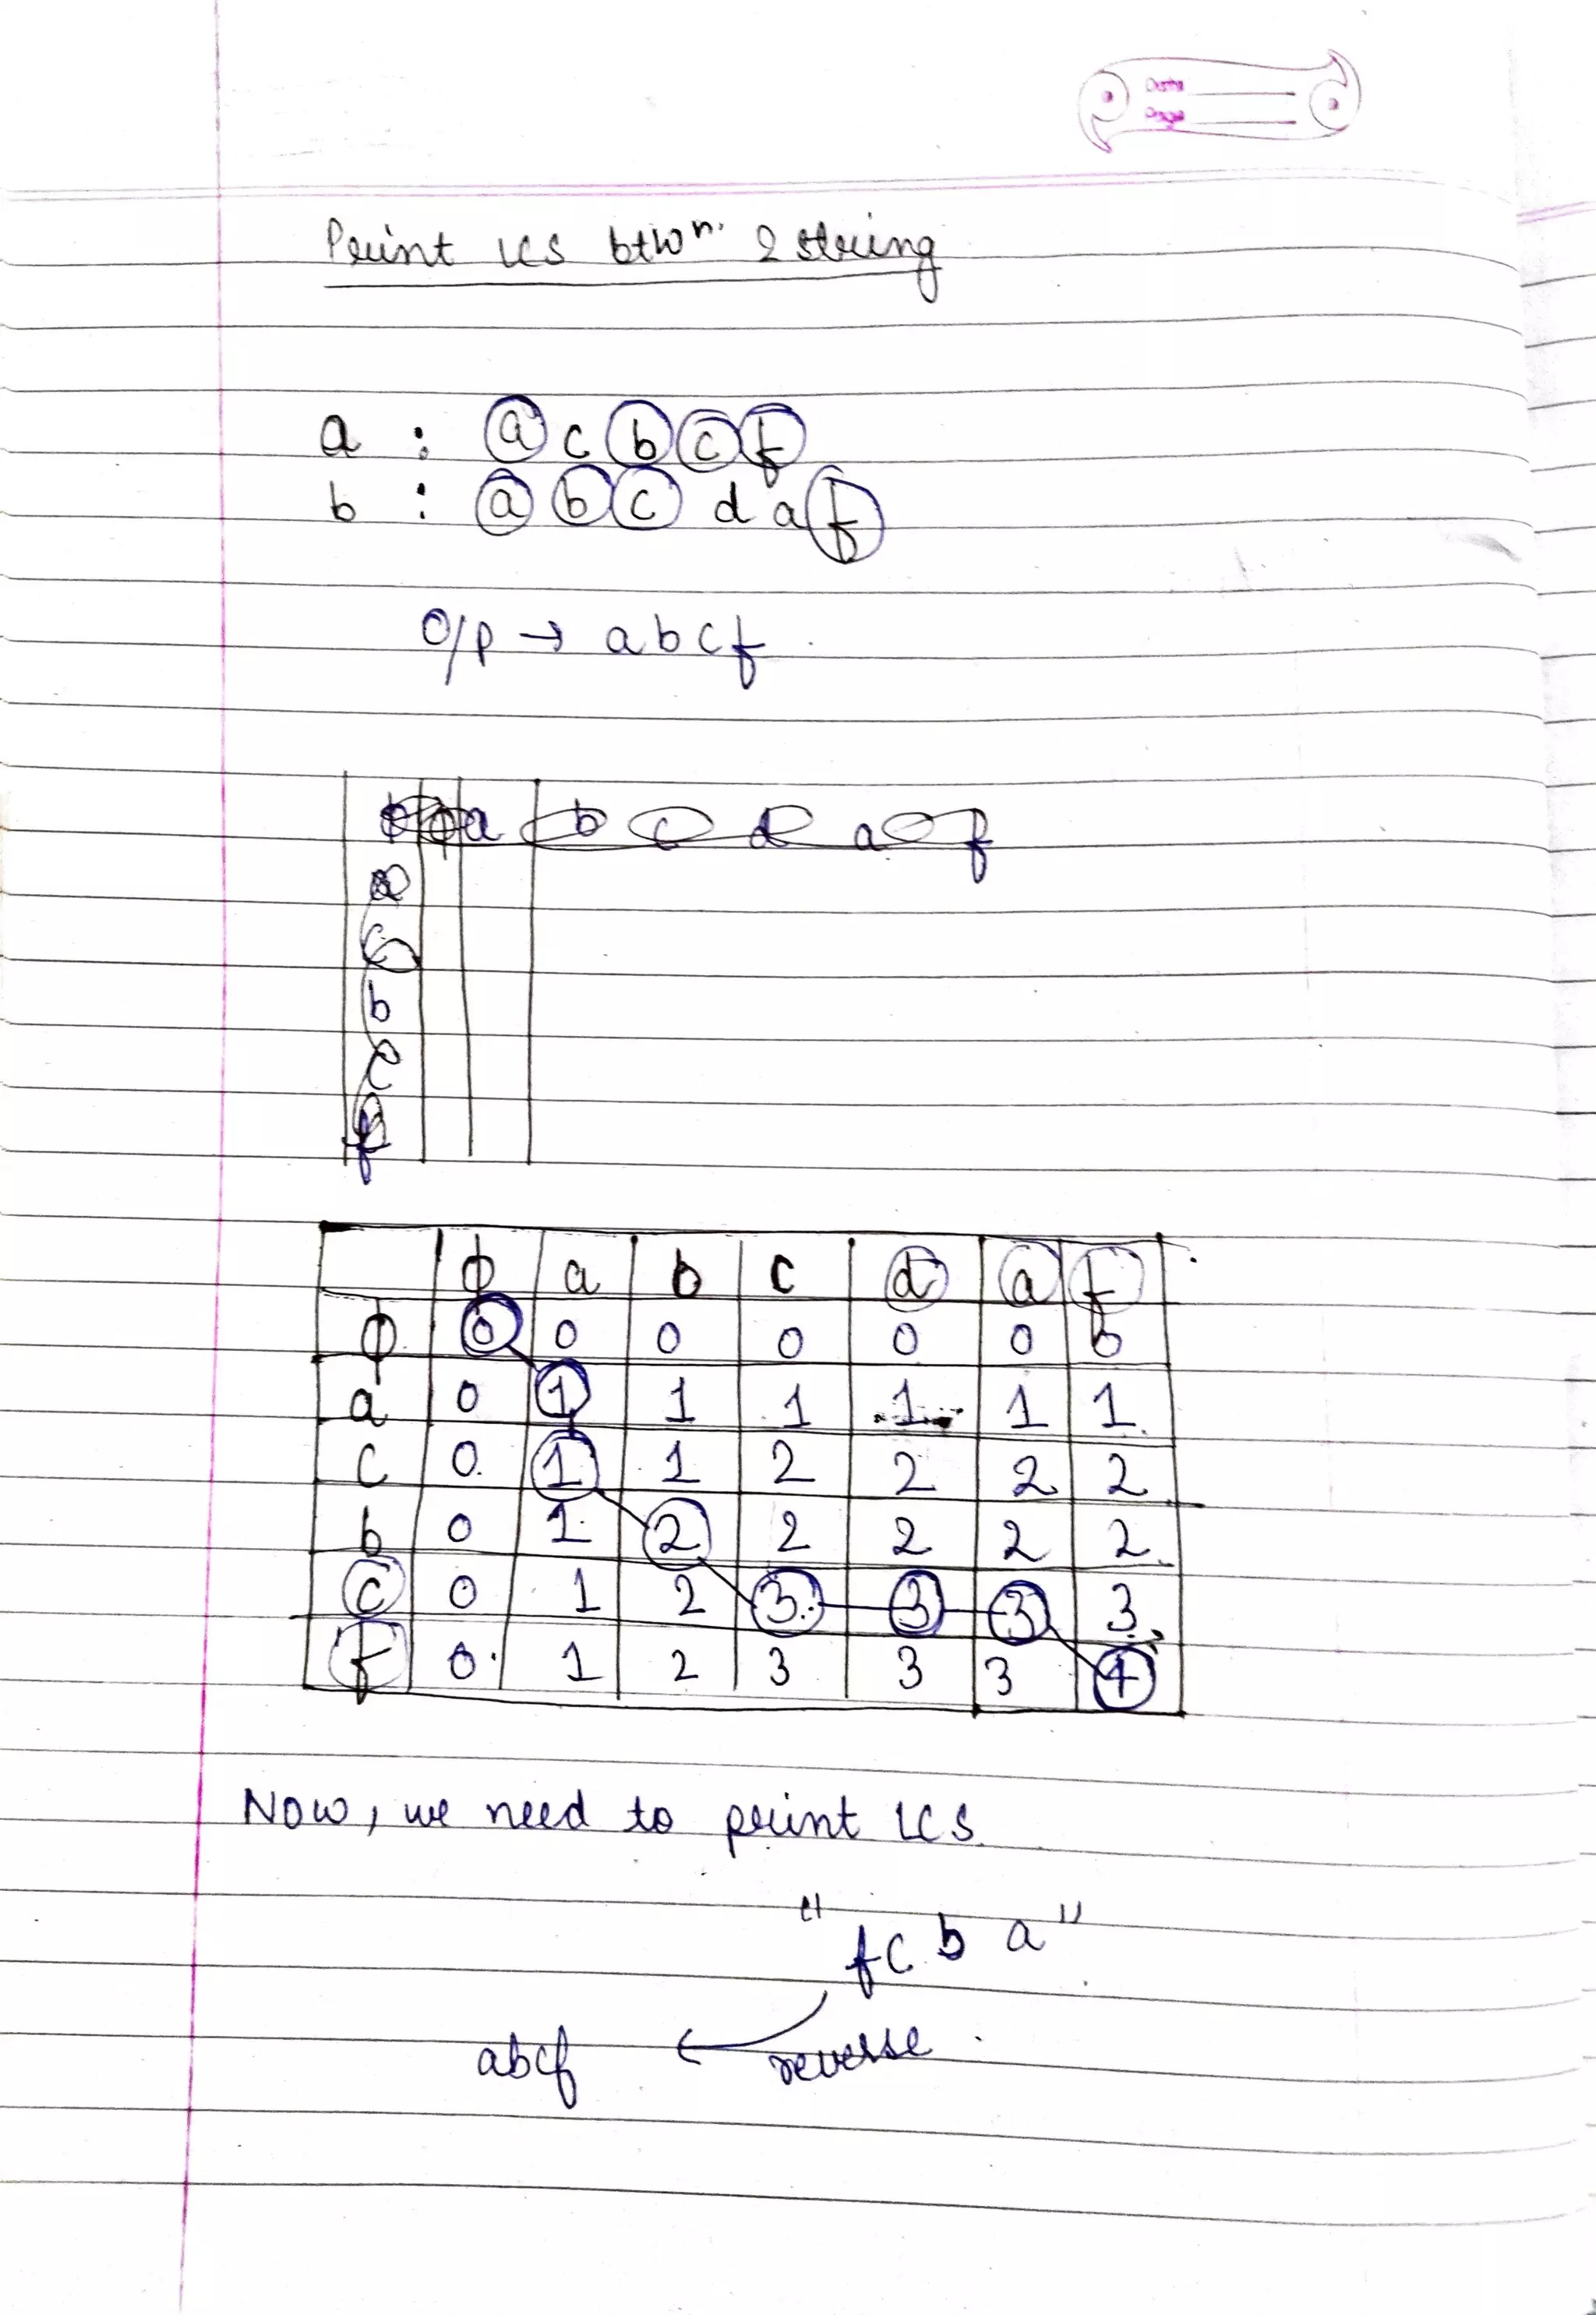 Date
Page
Print LCS btwn. 2 string
a : a c b c f
b : a b c d a f
O/P → a b c f
ϕ ϕ a b c d a f
a
c
b
c
f
ϕ a b c d a f
ϕ 0 0 0 0 0 0 0
a 0 1 1 1 1 1 1
c 0 1 1 2 2 2 2
b 0 1 2 2 2 2 2
c 0 1 2 3 3 3 3
f 0 1 2 3 3 3 4
Now, we need to print LCS
"fc b a"
abcf ← reverse